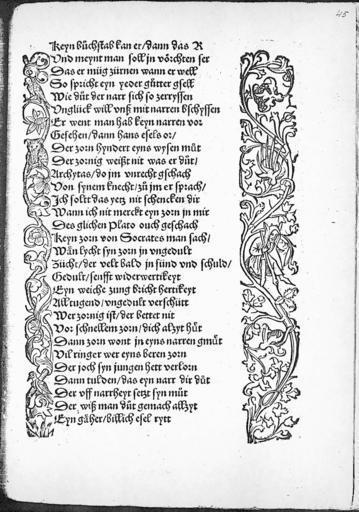 45
Keyn bůchstab kan er/dann das R
Vnd meynt man soll jn vörchten ser
Das er můg zürnen wann er well
So spricht eyn yeder gůtter gsell
Wie důt der narr sich so zerryssen
Vnglück will vnß mit narren bschyssen
Er went man hab keyn narren vor
Gesehen/dann hans esels or/
Der zorn hyndert eyns wysen můt
Der zornig weißt nit was er důt/
Archytas/do jm vnrecht gschach
Von synem knecht/zů jm er sprach/
Ich soltt das yetz nit schencken dir
Wann ich nit merckt eyn zorn jn mir
Des glichen Plato ouch geschach
Keyn zorn von Socrates man sach/
Wän lycht syn zorn jn vngedult
Zücht/der velt bald jn sünd vnd schuld/
Gedult/senfft widerwertikeyt
Eyn weiche zung bricht hertikeyt
All tugend/vngedult verschütt
Wer zornig ist/der bettet nit
Vor schnellem zorn/dich allzyt hůt
Dann zorn wont jn eyns narren gmůt
Vil ringer wer eyns beren zorn
Der joch syn jungen hett verlorn
Dann tulden/das eyn narr dir důt
Der vff narrheyt setzt syn můt
Der wiß man důt gemach allzyt
Eyn gäher/billich esel rytt